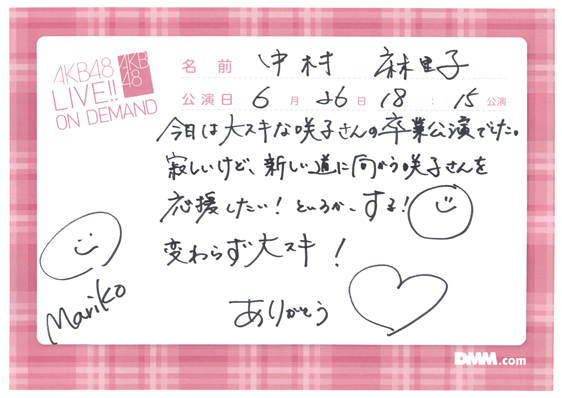 AKB48
LIVE!!
ON DEMAND
AKB
48
名前 中村 麻里子
公演日 6月26日 18:15公演
今日は大スキな咲子さんの卒業公演でした。
寂しいけど、新しい道に向かう咲子さんを
応援したい！というか、する！
変わらず大スキ！
ありがとう
Mariko
DMM.com